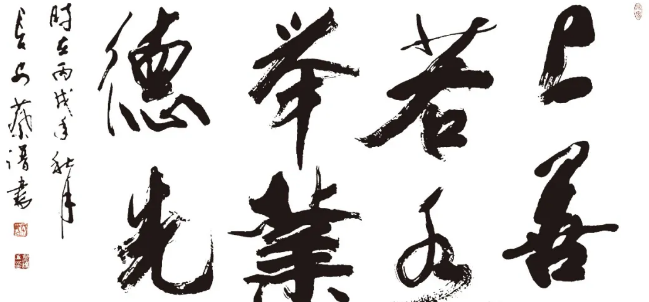 上善
若水
举業
德先
时在丙戌年秋月
长安蔡谱書